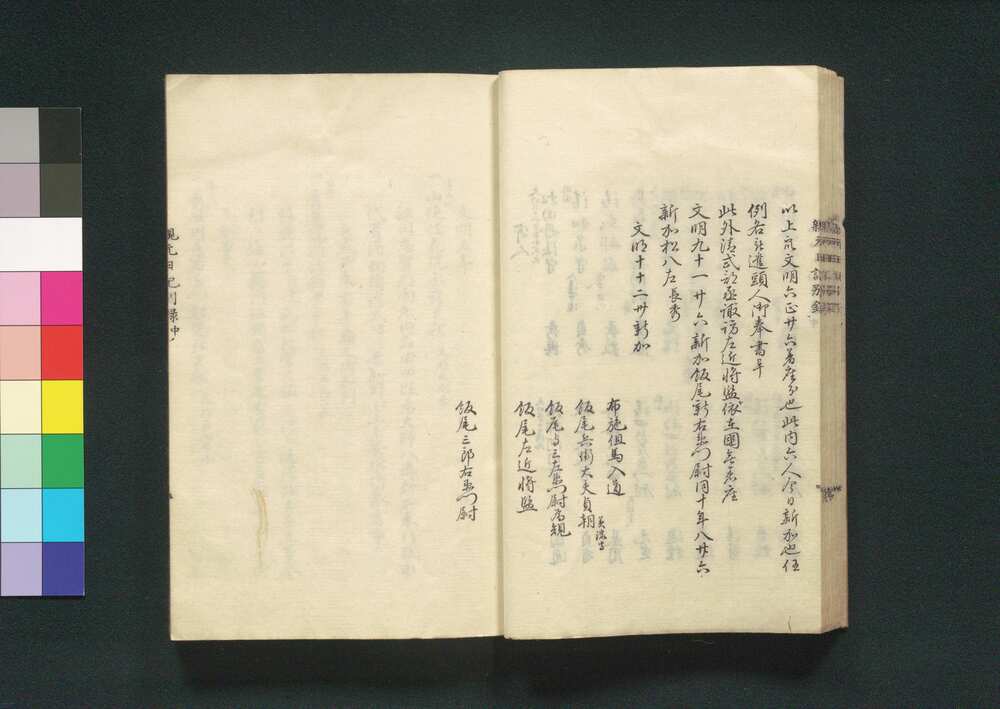 以上前文明六正廿六着座分也此内六人今日新加也任
例各被進頭人御奉書畢
此外清式部丞諏訪左近将監依在国無着座
文明九十一廿六新加飯尾新右衛門尉同十年八廿六
新加松八左長秀
文明十十二廿新加
布施但馬入道
飯尾兵衛大夫貞朝
飯尾与三左衛門尉為規
飯尾左近将監
飯尾三郎右衛門尉